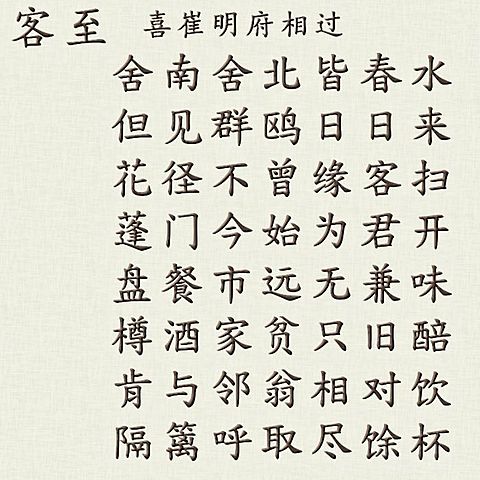 客至 喜崔明府相过
舍南舍北皆春水
但见群鸥日日来
花径不曾缘客扫
蓬门今始为君开
盘餐市远无兼味
樽酒家贫只旧醅
肯与邻翁相对饮
隔篱呼取尽馀杯